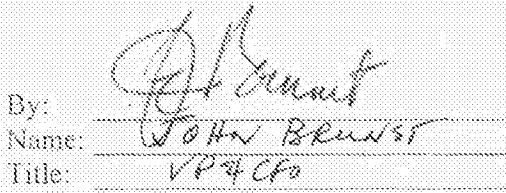 By:
Name: JOHN BRUNST
Title: VP & CFO